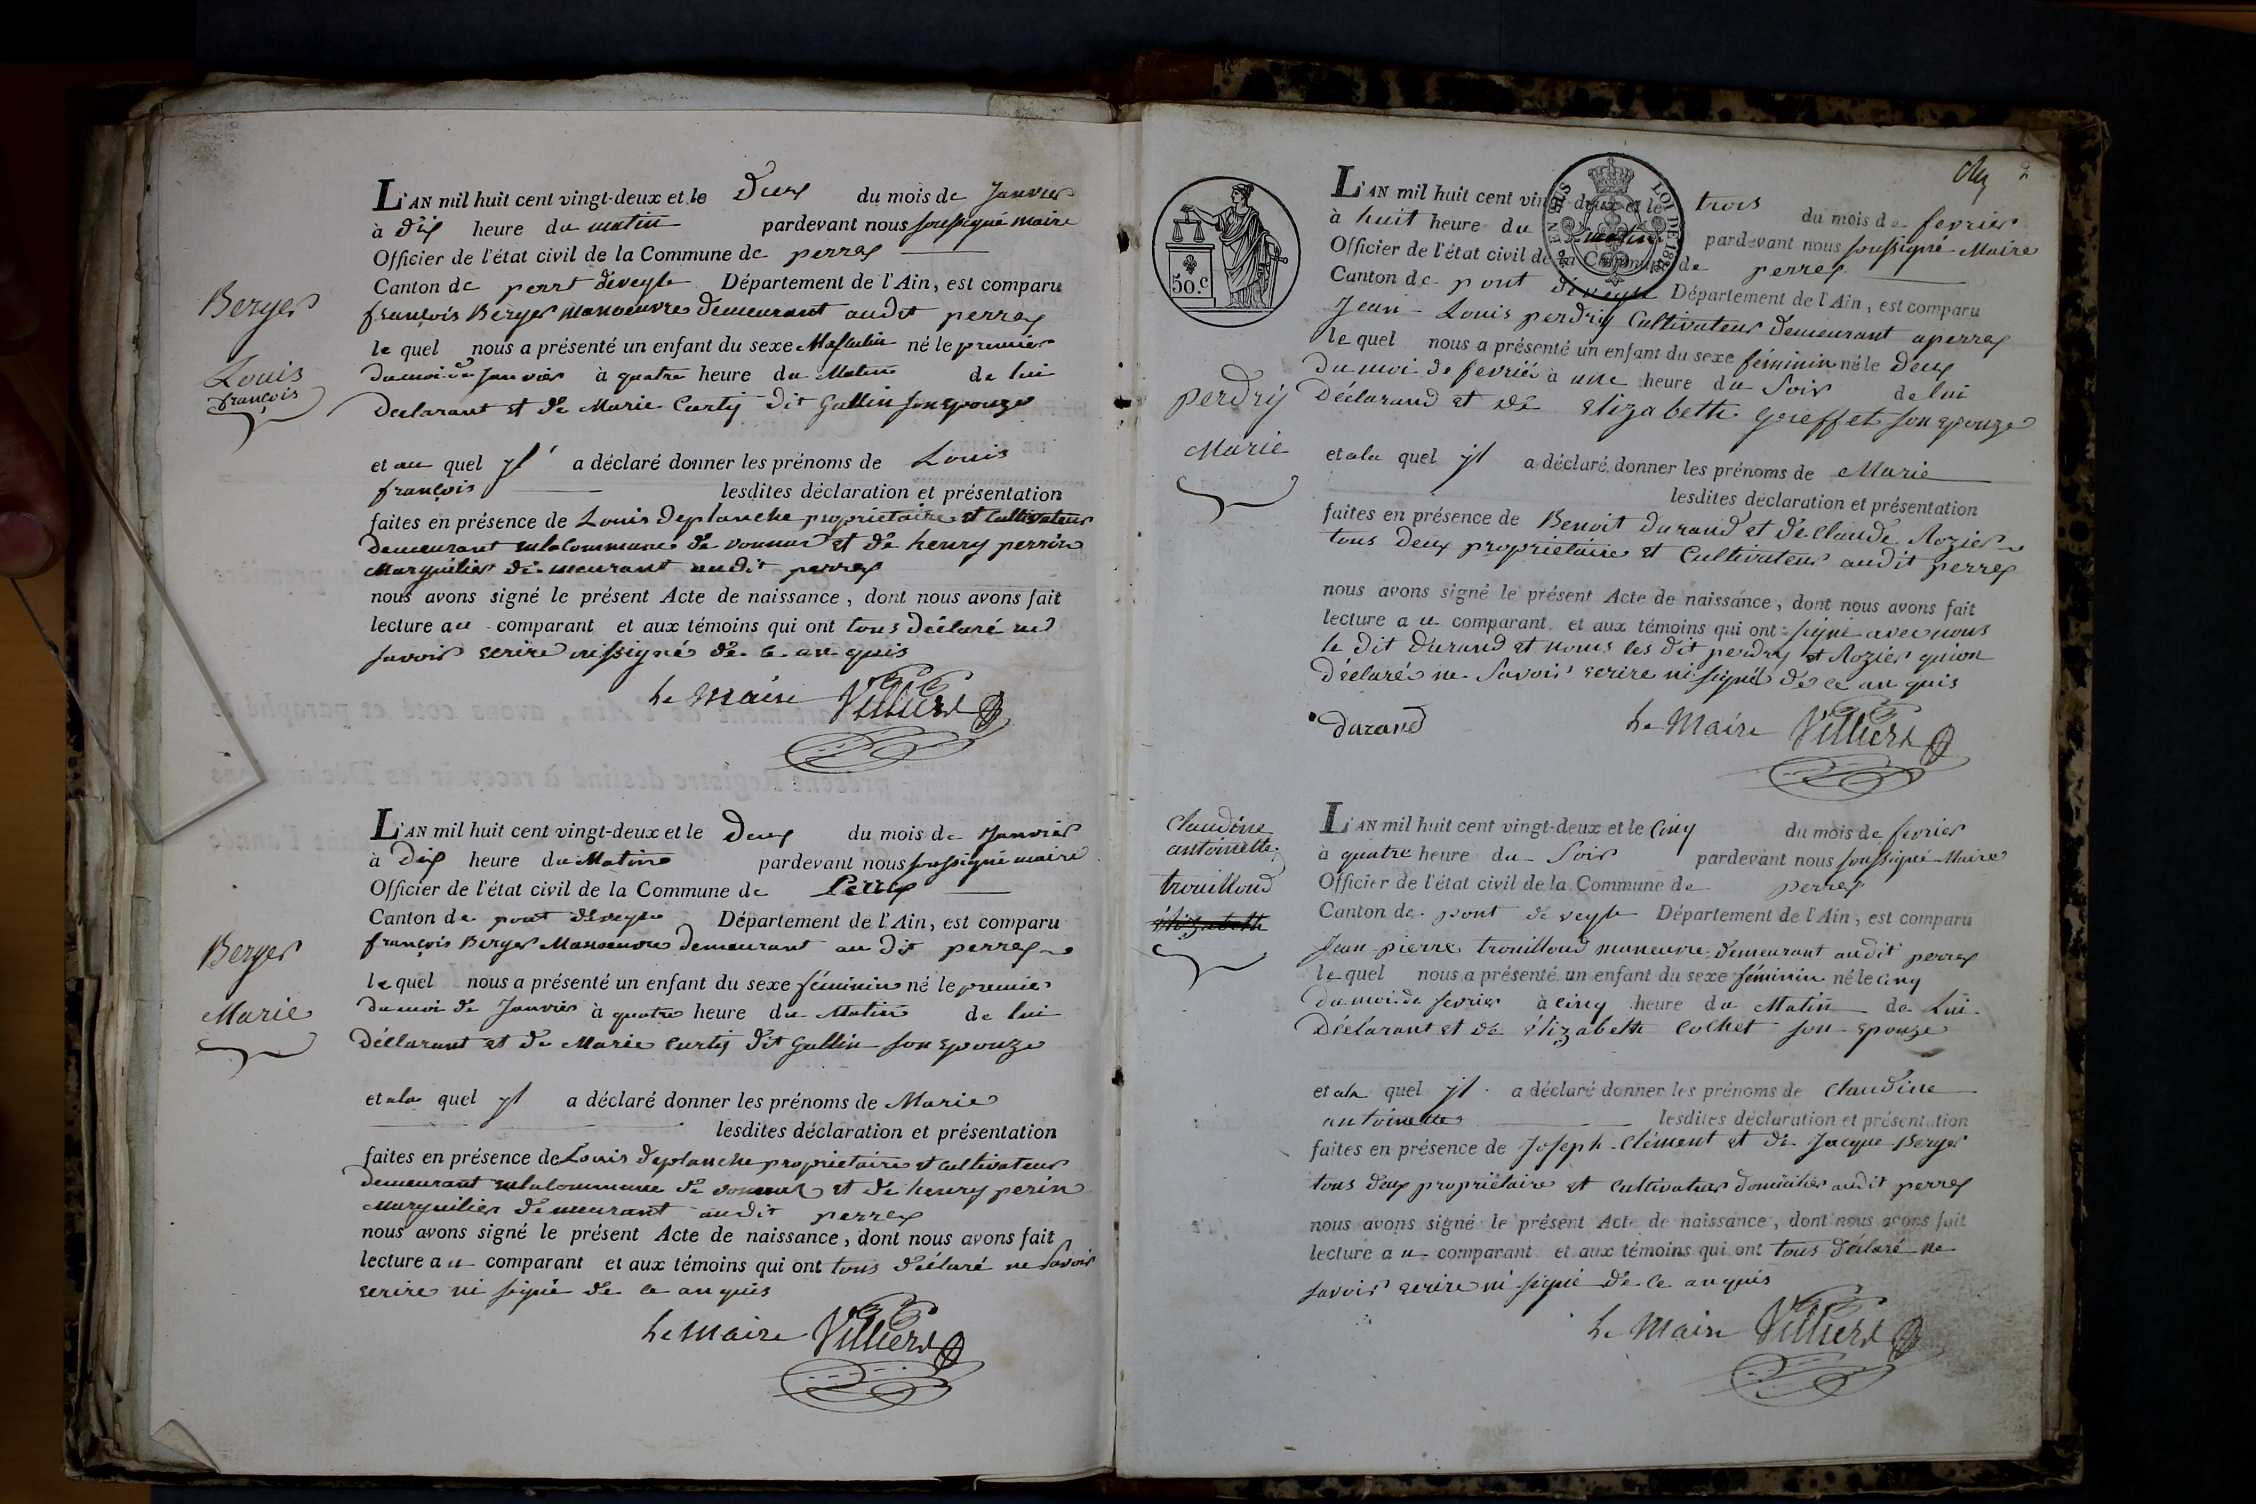 Berger
Louis
françois
L'AN mil huit cent vingt-deux et le Deux du mois de Janvier
à Dix heure du matin pardevant nous soussigné maire
Officier de l'état civil de la Commune de perrex
Canton de pont deveyle Département de l'Ain, est comparu
françois Berger manoeuvre demeurant audit perrex
le quel nous a présenté un enfant du sexe Masculin né le premier
du moi de Janvier à quatre heure du Matin de lui
Declarant et de Marie Curty dit Gallin son epouze
et au quel yl a déclaré donner les prénoms de Louis
françois lesdites déclaration et présentation
faites en présence de Louis Deplanche proprietaire et Cultivateur
demeurant en la Commune de vonnas et de henry perrin
Marguilier demeurant audit perrex
nous avons signé le présent Acte de naissance, dont nous avons fait
lecture au comparant et aux témoins qui ont tous déclaré ne
savoir ecrire ni signé de ce en quis
Le Maire Villierd
Berger
Marie
L'AN mil huit cent vingt-deux et le Deux du mois de Janvier
à Dix heure du Matin pardevant nous soussigné maire
Officier de l'état civil de la Commune de Perrex
Canton de pont deveyle Département de l'Ain, est comparu
françois Berger Manoeuvre demeurant au dit perrex
le quel nous a présenté un enfant du sexe féminin né le premier
du moi de Janvier à quatre heure du Matin de lui
Déclarant et de Marie Curty dit Gallin son epouze
et ala quel yl a déclaré donner les prénoms de Marie
lesdites déclaration et présentation
faites en présence de Louis Deplanche proprietaire et Cultivateur
demeurant en la Commune de vonnas et de henry perin
Marguilier demeurant audit perrex
nous avons signé le présent Acte de naissance, dont nous avons fait
lecture au comparant et aux témoins qui ont tous déclaré ne savoir
ecrire ni signé de ce an quis
Le Maire Villierd
2
50.c
EN SUS
LOI DE 18
perdrij
Marie
L'AN mil huit cent vingt-deux et le trois du mois de fevrier
à huit heure du matin pardevant nous soussigné Maire
Officier de l'état civil de la Commune de perrex
Canton de pont deveyle Département de l'Ain, est comparu
Jean-Louis perdrij Cultivateur demeurant a perrex
le quel nous a présenté un enfant du sexe féminin né le Deux
du moi de fevrier à une heure du Soir de lui
Déclarand et de Elizabeth greffet son epouze
et ala quel yl a déclaré donner les prénoms de Marie
lesdites déclaration et présentation
faites en présence de Benoit durand et de Claude Rozier
tous deux proprietaire et Cultivateur audit perrex
nous avons signé le présent Acte de naissance, dont nous avons fait
lecture au comparant et aux témoins qui ont signé avec nous
le dit Durand et nous les dit perdrij et Rozier qui on
déclaré ne Savoir ecrire ni signé de ce an quis
durand Le Maire Villierd
claudine
antoinette
trouilloud
élizabeth
L'AN mil huit cent vingt-deux et le Cinq du mois de fevrier
à quatre heure du Soir pardevant nous soussigné Maire
Officier de l'état civil de la Commune de perrex
Canton de pont de veyle Département de l'Ain, est comparu
Jean-pierre trouilloud maneuvre demeurant audit perrex
le quel nous a présenté un enfant du sexe féminin né le cinq
du moi de fevrier à cinq heure du Matin de Lui
Déclarant et de élizabeth Cochet son epouze
et ala quel yl a déclaré donner les prénoms de claudine
antoinette lesdites déclaration et présentation
faites en présence de Joseph Clément et de Jacque Berger
tous deux proprietaire et cultivateur domicilier audit perrex
nous avons signé le présent Acte de naissance, dont nous avons fait
lecture au comparant et aux témoins qui ont tous déclaré ne
savoir ecrire ni signé de ce an quis
Le Maire Villierd